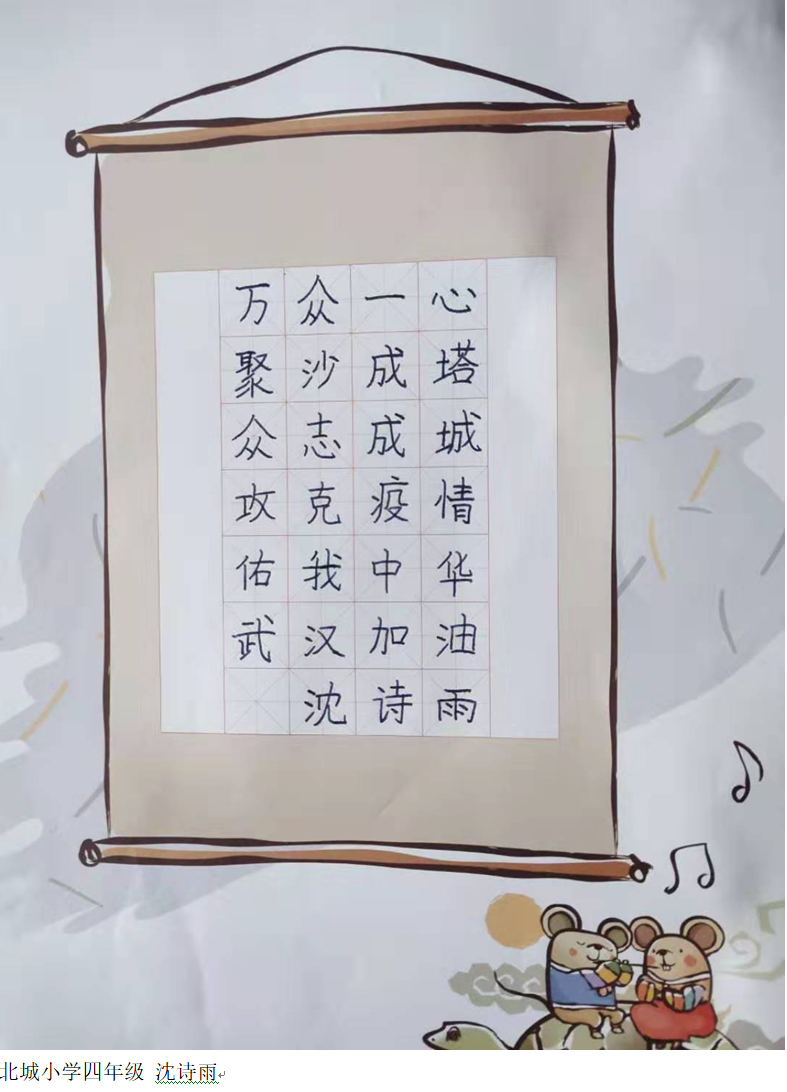 万众一心
聚沙成塔
众志成城
攻克疫情
佑我中华
武汉加油
沈诗雨
北城小学四年级 沈诗雨